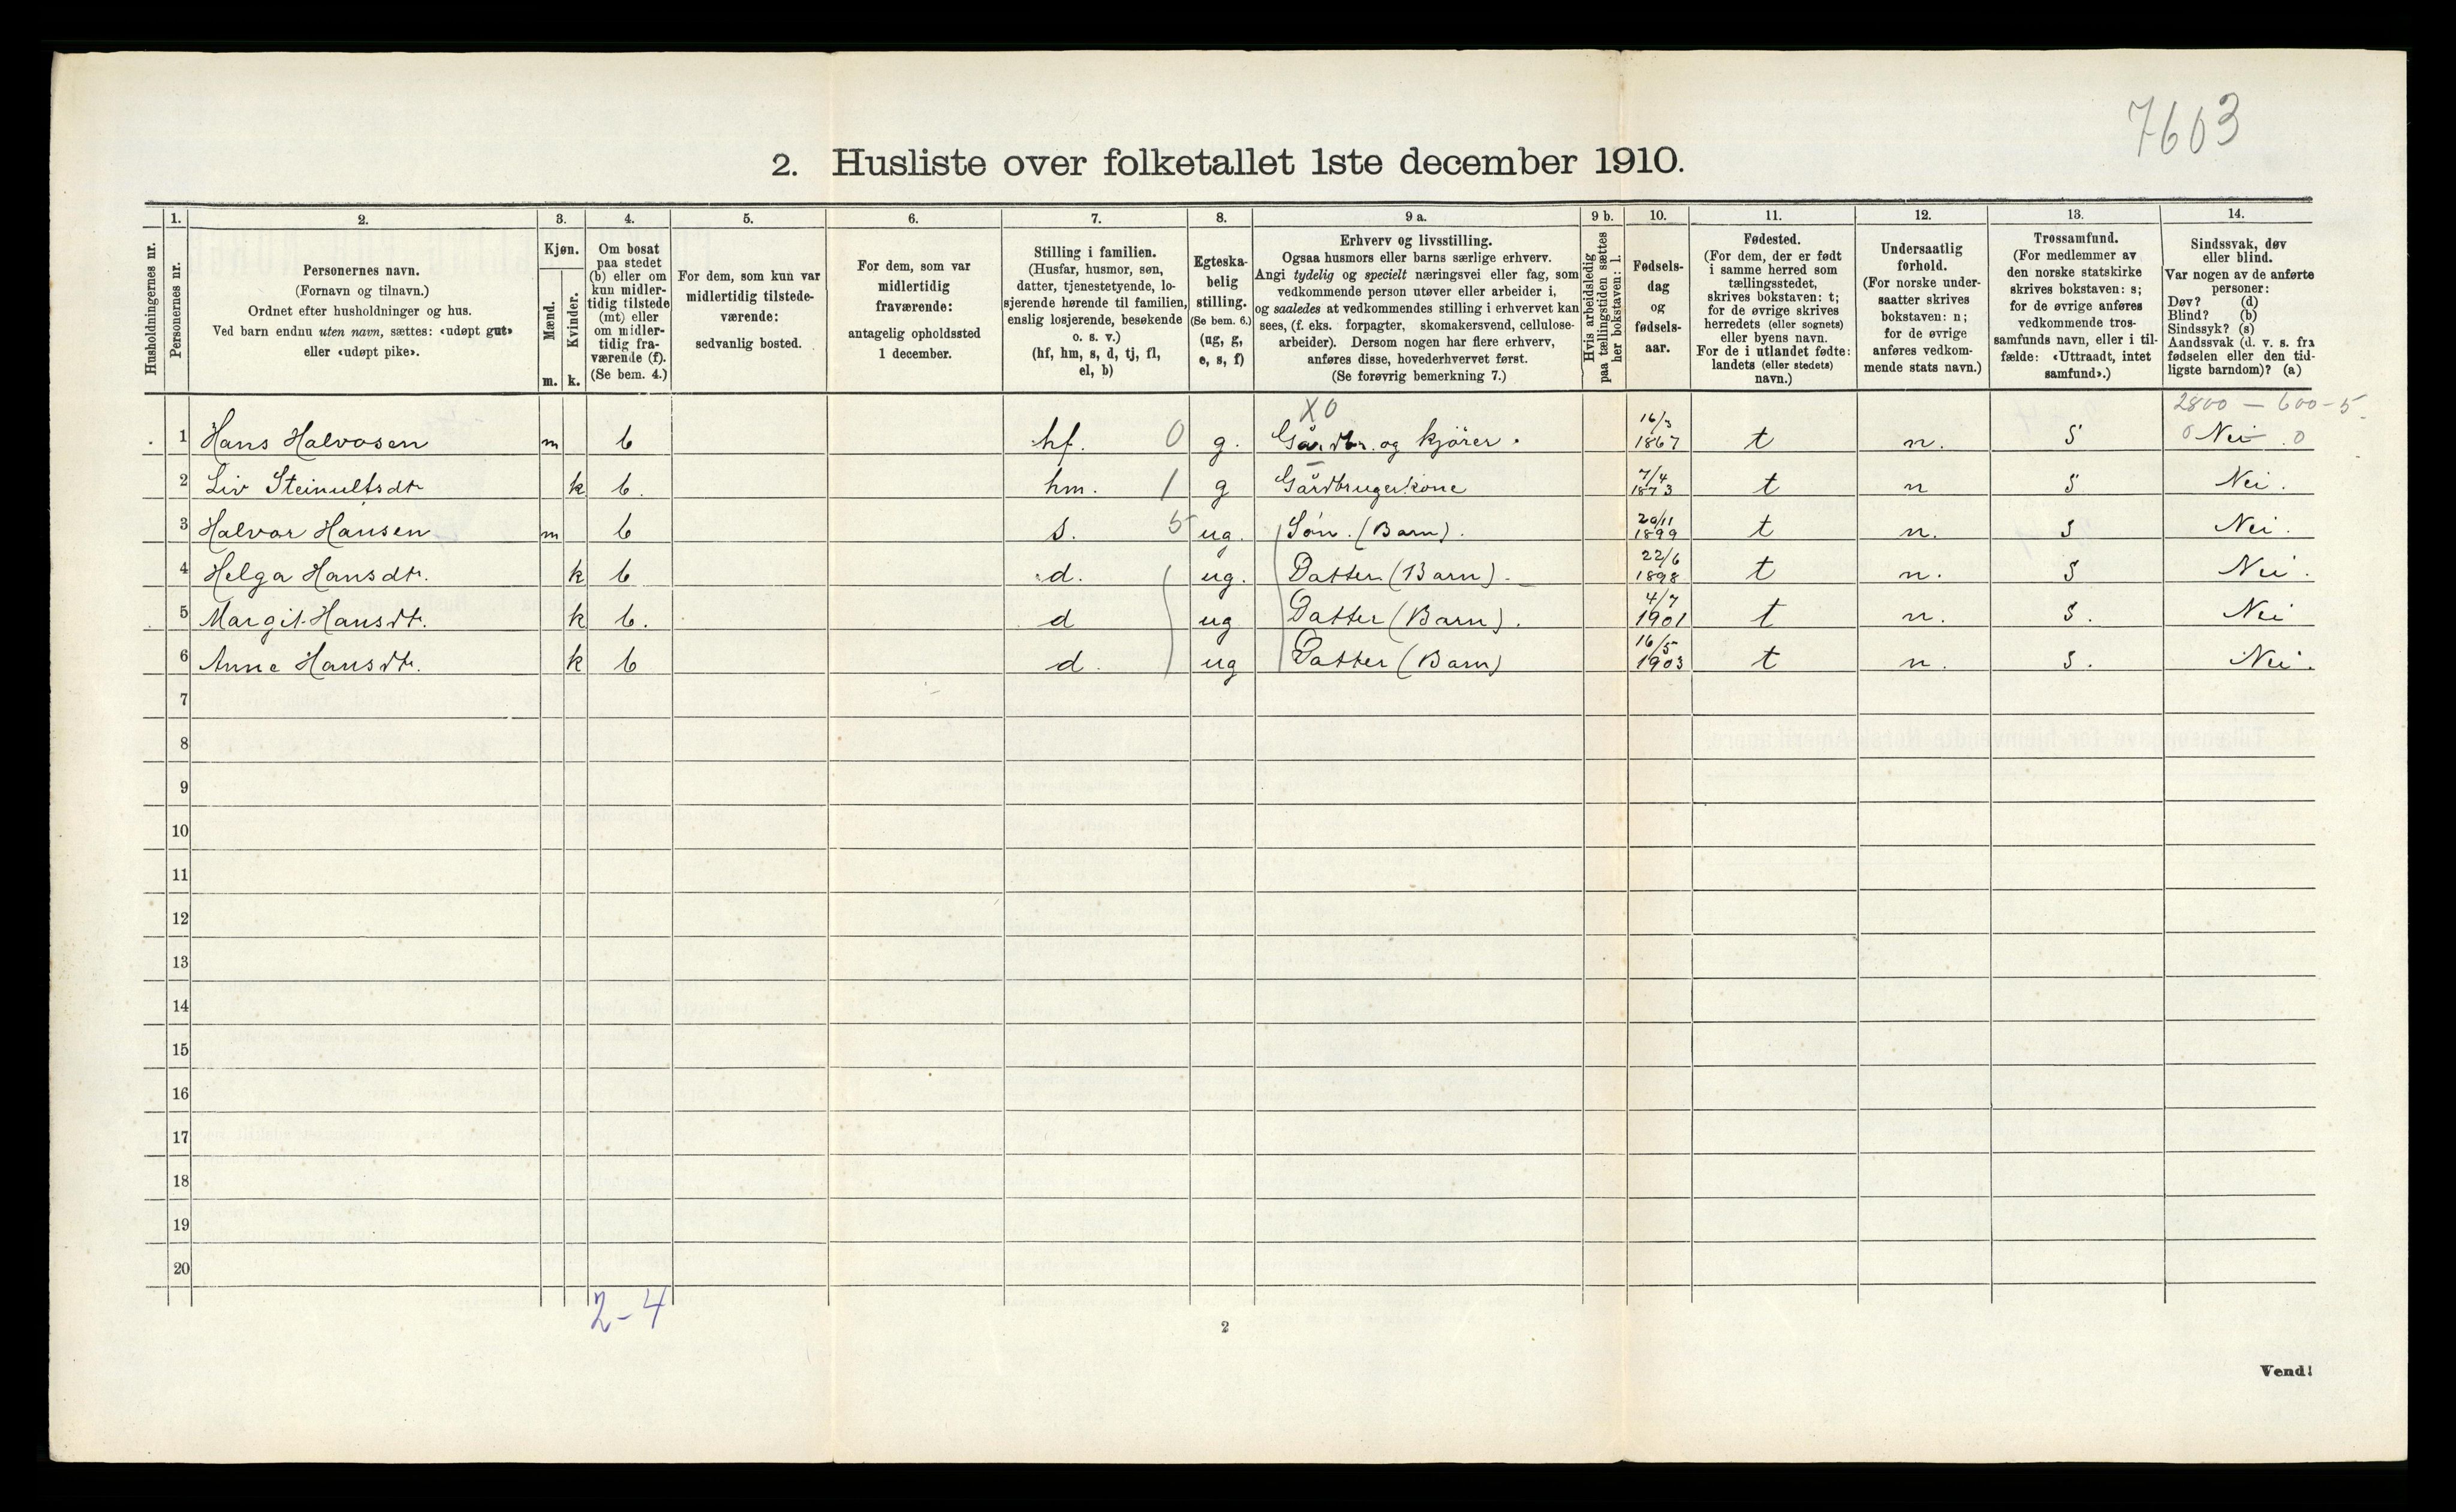 7603
2. Husliste over folketallet 1ste december 1910.
Husholdningernes nr.
1.
Personernes nr.
2.
Personernes navn.
(Fornavn og tilnavn.)
Ordnet efter husholdninger og hus.
Ved barn endnu uten navn, sættes: «udøpt gut»
eller «udøpt pike».
3.
Kjøn.
Mænd.
m.
Kvinder.
k.
4.
Om bosat
paa stedet
(b) eller om
kun midler-
tidig tilstede
(mt) eller
om midler-
tidig fra-
værende (f).
(Se bem. 4.)
5.
For dem, som kun var
midlertidig tilstede-
værende:
sedvanlig bosted.
6.
For dem, som var
midlertidig
fraværende:
antagelig opholdssted
1 december.
7.
Stilling i familien.
(Husfar, husmor, søn,
datter, tjenestetyende, lo-
sjerende hørende til familien,
enslig losjerende, besøkende
o. s. v.)
(hf, hm, s, d, tj, fl,
el, b)
8.
Egteska-
belig
stilling.
(Se bem. 6.)
(ug, g,
e, s, f)
9 a.
Erhverv og livsstilling.
Ogsaa husmors eller barns særlige erhverv.
Angi tydelig og specielt næringsvei eller fag, som
vedkommende person utøver eller arbeider i,
og saaledes at vedkommendes stilling i erhvervet kan
sees, (f. eks. forpagter, skomakersvend, cellulose-
arbeider). Dersom nogen har flere erhverv,
anføres disse, hovederhvervet først.
(Se forøvrig bemerkning 7.)
9 b.
Hvis arbeidsledig
paa tællingstiden sættes
her bokstaven: l.
10.
Fødsels-
dag
og
fødsels-
aar.
11.
Fødested.
(For dem, der er født
i samme herred som
tællingsstedet,
skrives bokstaven: t;
for de øvrige skrives
herredets (eller sognets)
eller byens navn.
For de i utlandet fødte:
landets (eller stedets)
navn.)
12.
Undersaatlig
forhold.
(For norske under-
saatter skrives
bokstaven: n;
for de øvrige
anføres vedkom-
mende stats navn.)
13.
Trossamfund.
(For medlemmer av
den norske statskirke
skrives bokstaven: s;
for de øvrige anføres
vedkommende tros-
samfunds navn, eller i til-
fælde: «Uttraadt, intet
samfund».)
14.
Sindssvak, døv
eller blind.
Var nogen av de anførte
personer:
Døv? (d)
Blind? (b)
Sindssyk? (s)
Aandssvak (d. v. s. fra
fødselen eller den tid-
ligste barndom)? (a)
X0 2800 - 600-5
1 Hans Halvosen m b hf. 0 g. Gårdbr. og kjörer. 16/3 1867 t n. S 0 Nei 0
2 Liv Steinulfsdtr k b. hm. 1 g Gårdbrugerkone 7/4 1873 t n S Nei.
3 Halvor Hansen m b s. 5 ug. Sön. (Barn). 20/11 1899 t n. S Nei.
4 Helga Hansdtr. k b d. ug. Datter (Barn). 22/6 1898 t n. S Nei.
5 Margit Hansdtr. k b. d ug Datter (Barn). 4/7 1901 t n. S. Nei
6 Anne Hansdtr. k b d. ug Datter (Barn) 16/5 1903 t n. S. Nei.
7
8
9
10
11
12
13
14
15
16
17
18
19
20
2-4
2
Vend!